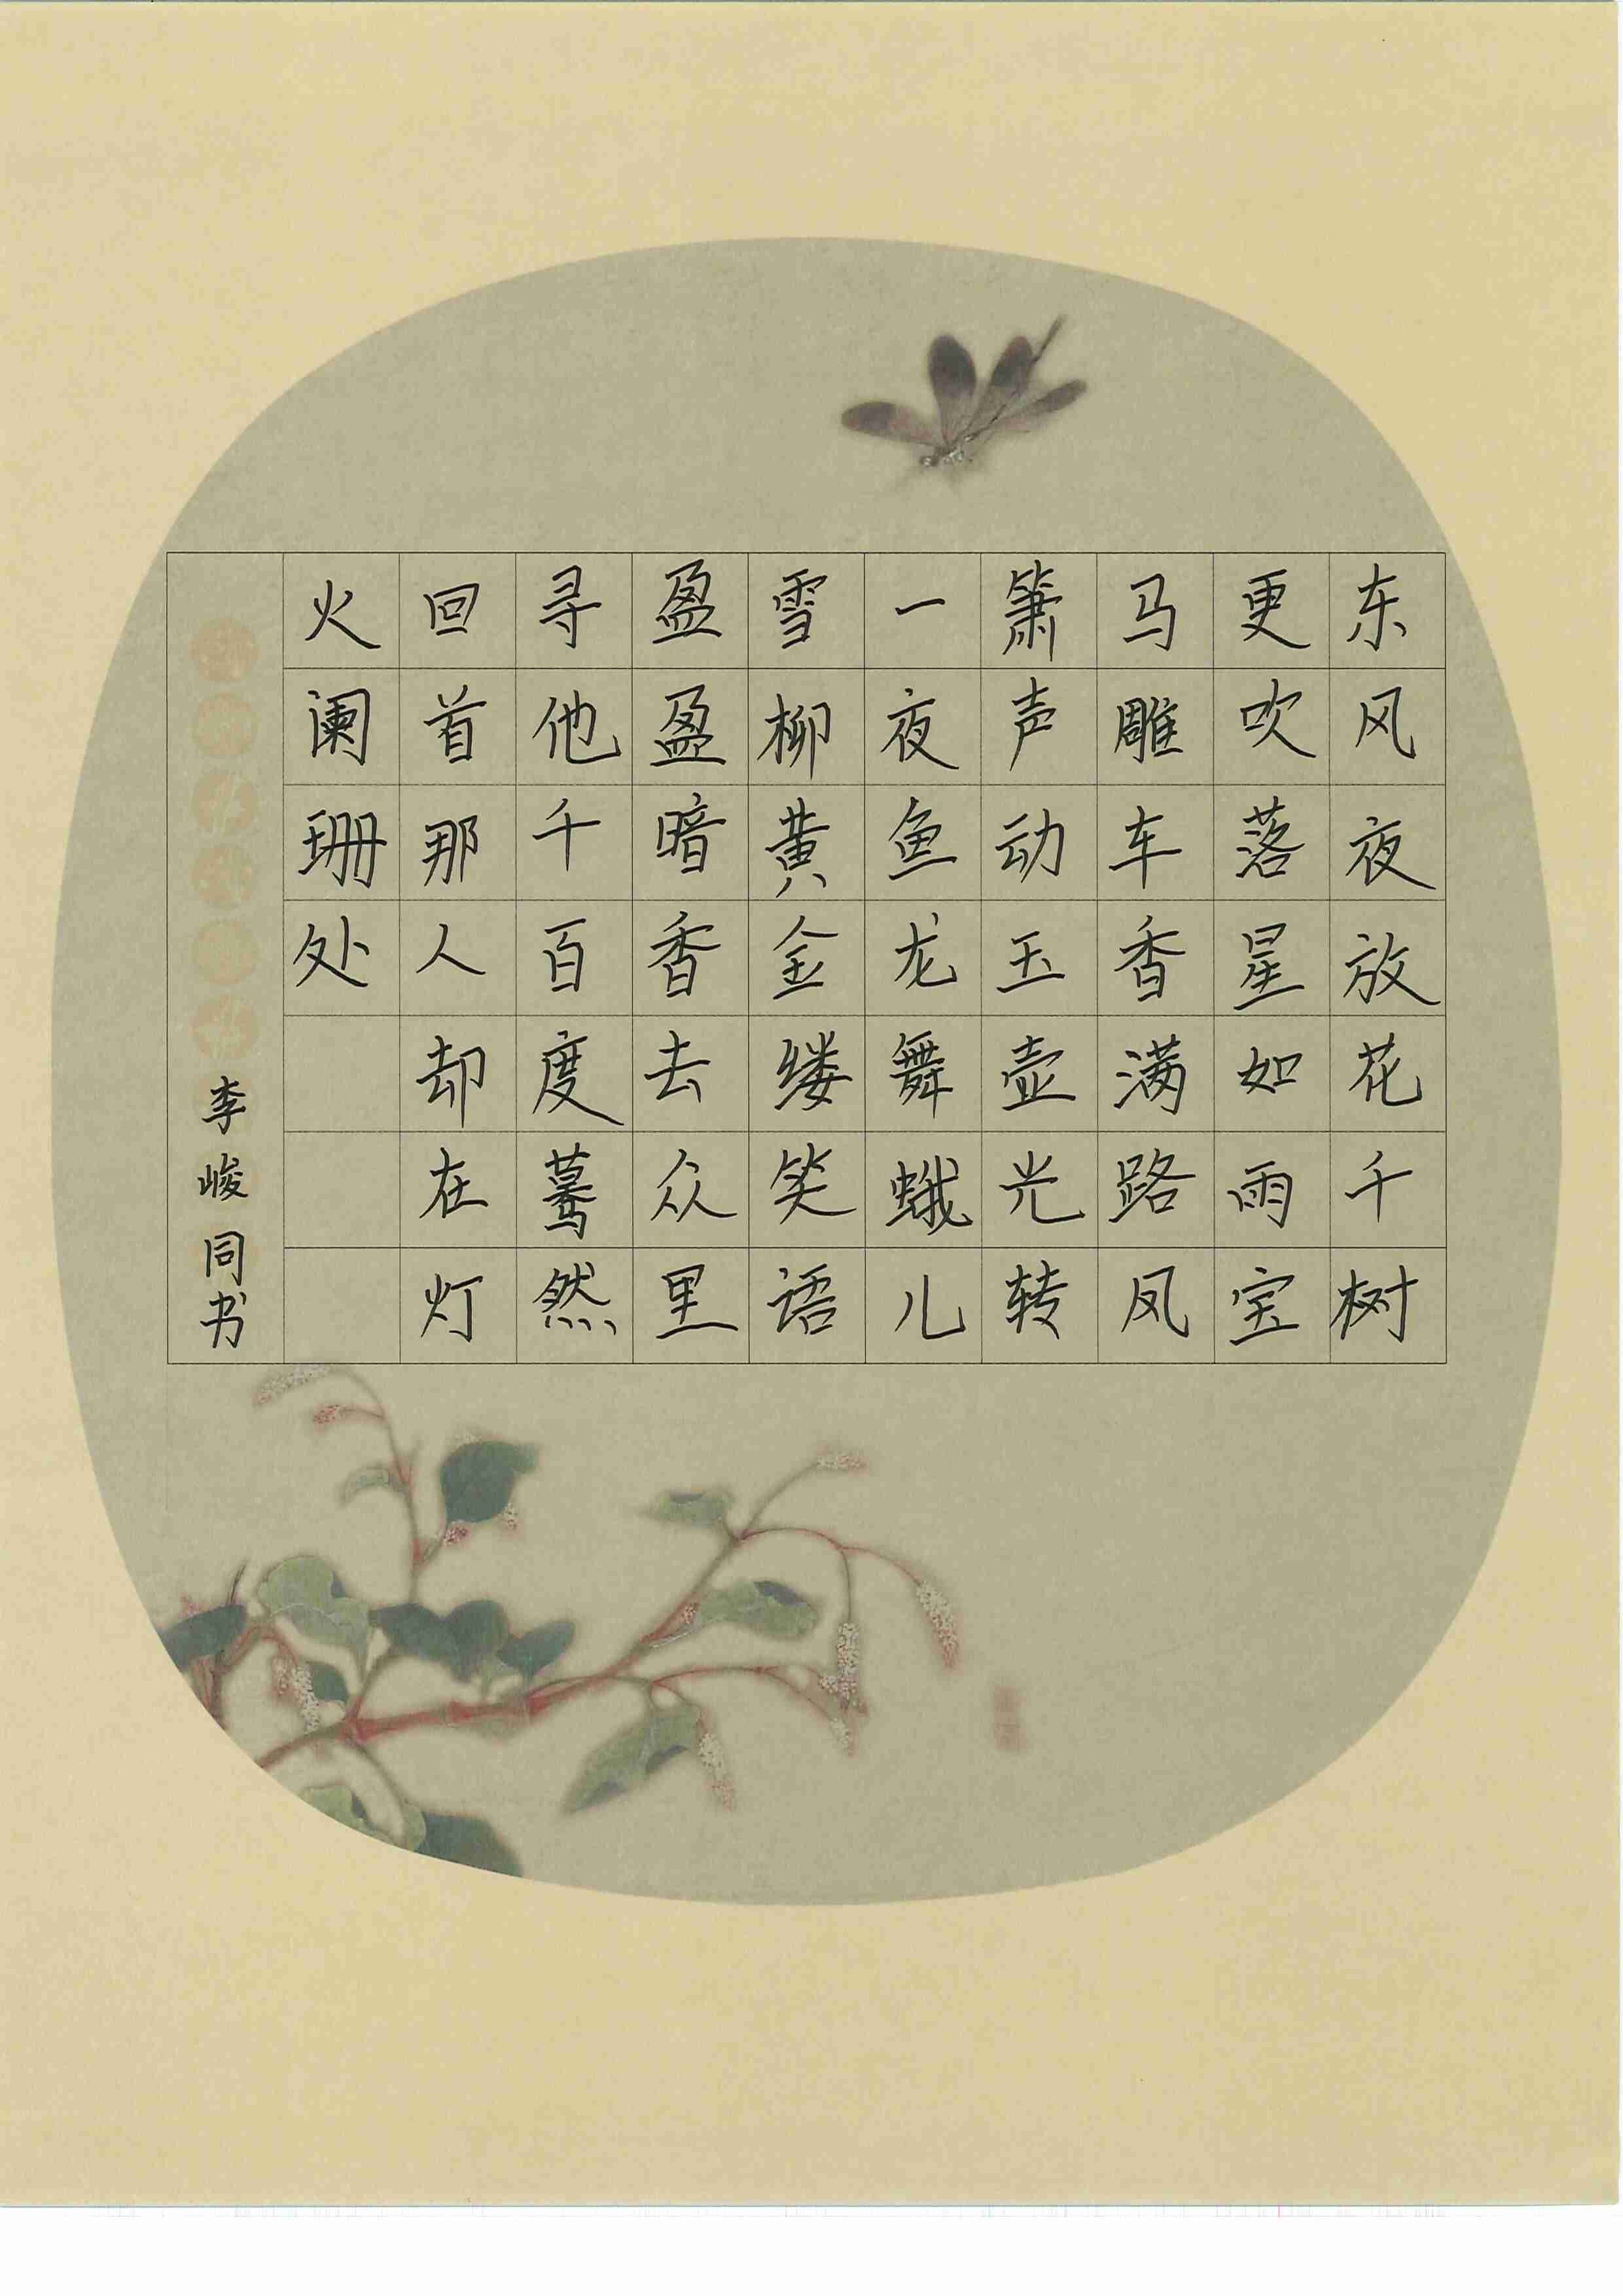 东风夜放花千树
更吹落星如雨宝
马雕车香满路凤
箫声动玉壶光转
一夜鱼龙舞蛾儿
雪柳黄金缕笑语
盈盈暗香去众里
寻他千百度蓦然
回首那人却在灯
火阑珊处
李峻同书